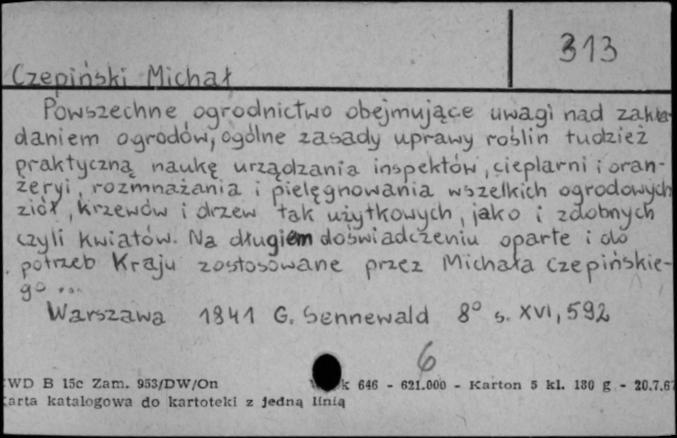 313
Czepiński Michał
Powszechne ogrodnictwo obejmujące uwagi nad zakła-
daniem ogrodów, ogólne zasady uprawy roślin tudzież
praktyczną naukę urządzania inspektów, cieplarni i oran-
żeryi, rozmnażania i pielęgnowania wszelkich ogrodowych
ziół, krzewów i drzew tak użytkowych, jako i zdobnych
czyli kwiatów. Na długiem doświadczeniu oparte i do
potrzeb Kraju zastosowane przez Michała Czepińskie-
go ...
Warszawa 1841 G. Sennewald 8° s. XVI, 592
6
WD B 15c Zam. 953/DW/On k 646 - 621.000 - Karton 5 kl. 180 g - 20.7.6
arta katalogowa do kartoteki z jedną linią